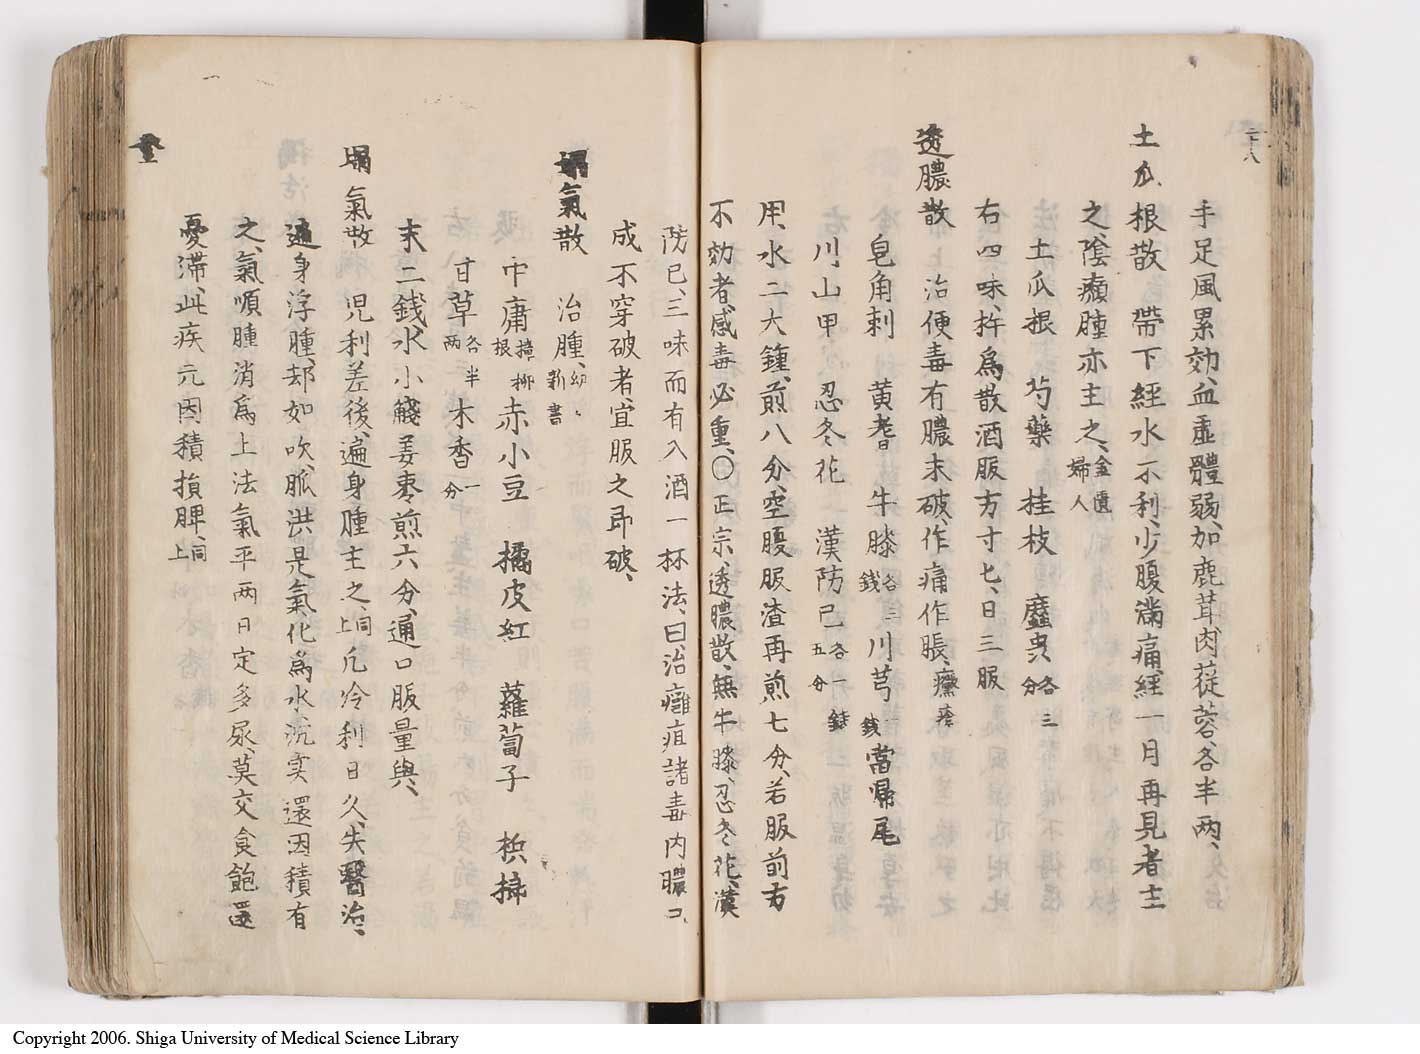 二十八
手足風累効、血虚體弱、加鹿茸肉蓯蓉、各半两、
土瓜根散 帶下經水不利、少腹滿痛、經一月再見者主
之、陰癩腫亦主之、金匱婦人
土瓜根 芍藥 桂枝 䗪虫各三分
右四味、杵為散酒服方寸匕、日三服
透膿散 治便毒有膿未破、作痛作脹、癰瘡
皂角刺 黃耆 牛膝各二錢 川芎一錢 當帰尾
川山甲 忍冬花 漢防己各一錢五分
用、水二大鍾、煎八分、空腹服渣再煎七分、若服前方
不効者、感毒必重、〇正宗、透膿散、無牛膝、忍冬花、漢
防已、三味而有入酒一杯法、曰、治癰疽諸毒内膿コ
成不穿破者、宜服之即破、
塌氣散 治腫、幼〻新書
中庸根 赤小豆 橘皮紅 蘿蔔子 梹榔
甘草各半两 木香一分
末二錢水小盞姜棗煎六分、通口服量與、
塌氣散 児利差後、遍身腫主之、同上 凡冷利日久、失醫治、
遍身浮腫、却如吹、脈洪是氣化為水沉実還因積有
之、氣順腫消為上法氣平两日定多尿、莫交食飽還
憂滞、此疾元因積損脾、同上
Copyright 2006. Shiga University of Medical Science Library